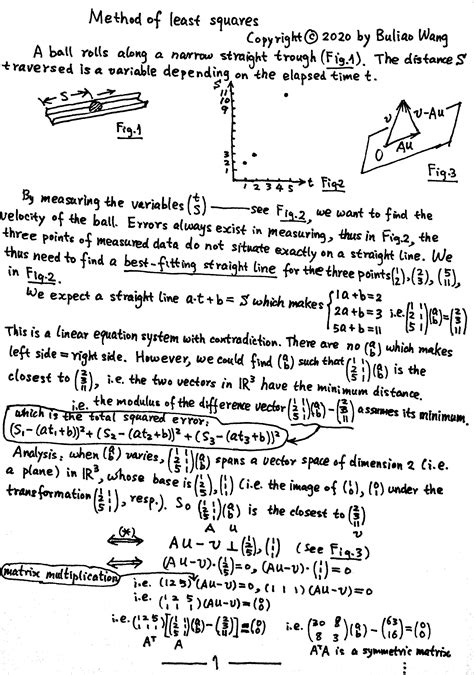 Method of least squares
Copyright © 2020 by Buliao Wang
A ball rolls along a narrow straight trough (Fig.1). The distance S
traversed is a variable depending on the elapsed time t.
S
Fig.1
S
11
10
9
3
2
1
1 2 3 4 5 t Fig.2
v v-Au
O Au
Fig.3
By measuring the variables (t S) — see Fig.2, we want to find the
velocity of the ball. Errors always exist in measuring, thus in Fig.2, the
three points of measured data do not situate exactly on a straight line. We
thus need to find a best-fitting straight line for the three points (1 2), (2 3), (5 11),
in Fig.2.
We expect a straight line a·t+b = S which makes { 1a+b=2 2a+b=3 5a+b=11 i.e. (1 1 2 1 5 1)(a b)=(2 3 11)
This is a linear equation system with contradiction. There are no (a b) which makes
left side = right side. However, we could find (a b) such that (1 1 2 1 5 1)(a b) is the
closest to (2 3 11), i.e. the two vectors in IR³ have the minimum distance.
i.e. the modulus of the difference vector (1 1 2 1 5 1)(a b)-(2 3 11) assumes its minimum.
which is the total squared error:
(S₁-(at₁+b))²+(S₂-(at₂+b))²+(S₃-(at₃+b))²
Analysis: when (a b) varies, (1 1 2 1 5 1)(a b) spans a vector space of dimension 2 (i.e.
a plane) in IR³, whose base is (1 2 5), (1 1 1) (i.e. the image of (1 0), (0 1) under the
transformation (1 1 2 1 5 1), resp.). So (1 1 2 1 5 1)(a b) is the closest to (2 3 11)
A u v
(*) ⟺ Au-v ⊥ (1 2 5), (1 1 1) (see Fig.3)
⟺ (Au-v)·(1 2 5)=0, (Au-v)·(1 1 1)=0
matrix multiplication
i.e. (1 2 5)(Au-v)=0, (1 1 1)(Au-v)=0
i.e. (1 2 5 1 1 1)(Au-v)=(0 0)
i.e. (1 2 5 1 1 1)[(1 1 2 1 5 1)(a b)-(2 3 11)]=(0 0) i.e. (30 8 8 3)(a b)-(63 16)=(0 0)
Aᵀ A AᵀA is a symmetric matrix
1